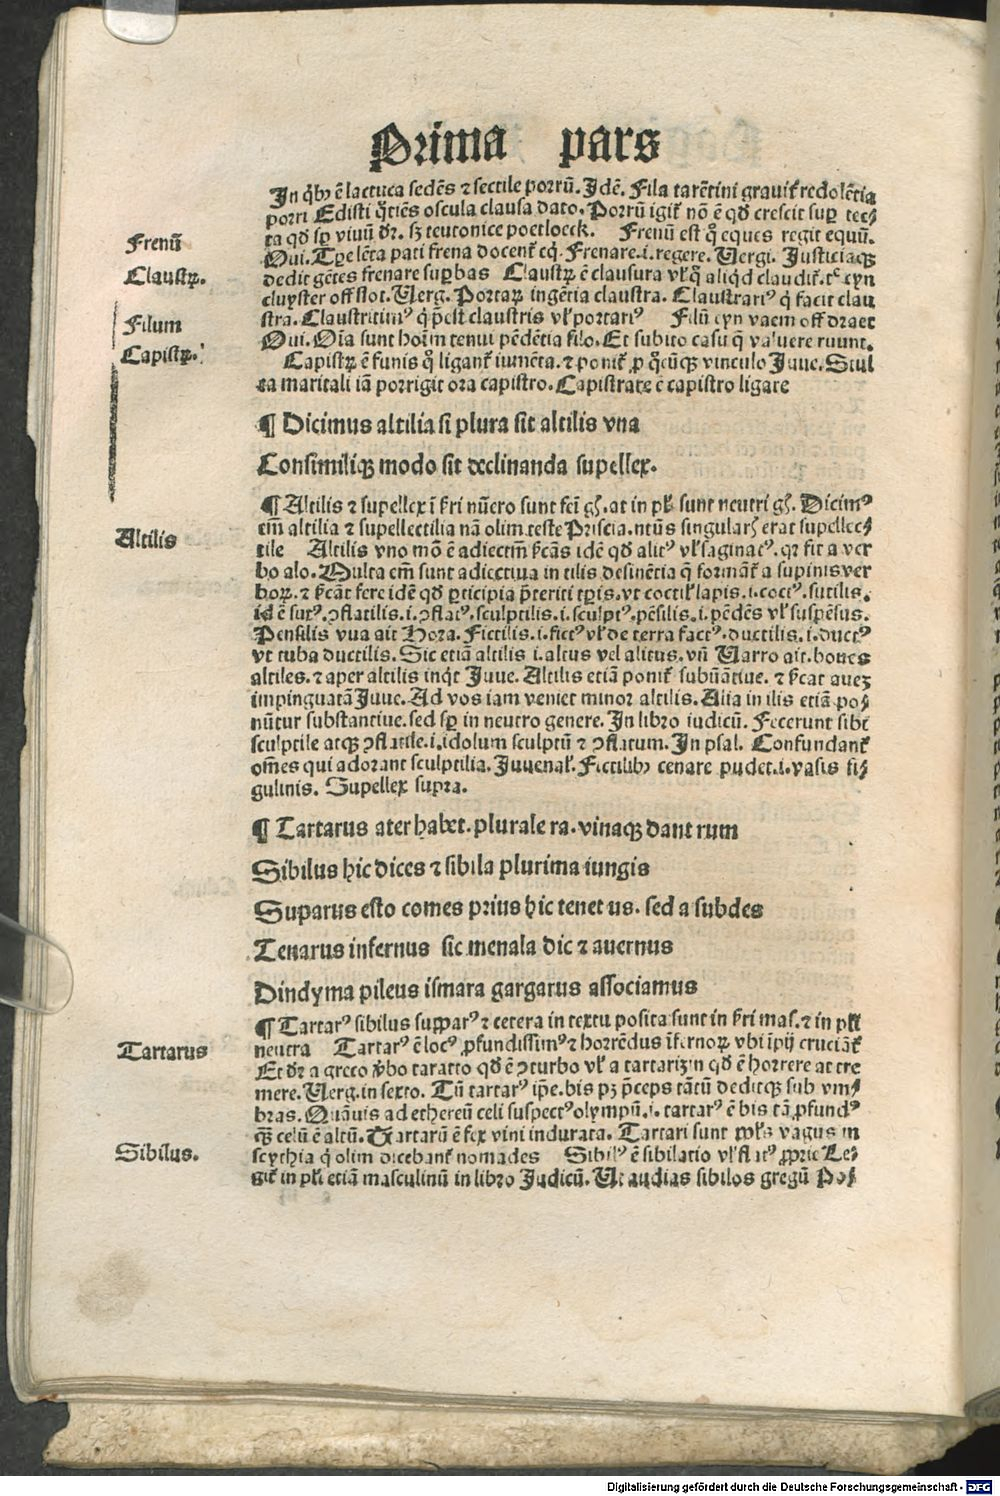 Prima pars
In qͥbꝫ ē lactuca sedēs ⁊ sectile porrū. Idē. Fila tarētini grauit̉ redolētia
porri Edisti q̊tiēs oscula clausa dato. Porrū igit̉ nō ē qd̄ crescit suꝑ tec⸗
ta qd̄ sꝑ viuū dr̄. sꝫ teutonice poetloeck. Frenū est q̊ eques regit equū.
Oui. Tꝑe lēta pati frena docent̉ eq̇. Frenare .i. regere. Uergi. Justiciaqꝫ
dedit gētes frenare suꝑbas Claustꝝ ē clausura vl̉ q̊ aliqd̄ claudit̉. tc̄ eyn
cluyster off slot. Uerg. Portaꝝ ingētia claustra. Claustrariꝰ q̇ facit clau
stra. Claustritimꝰ q̇ p̄est claustris vl̉ portariꝰ Filū eyn vaem off draet
Oui. Oīa sunt hoīm tenui pēdētia filo. Et subito casu q̄ valuere ruunt.
Capistꝝ ē funis q̊ ligant̉ iumēta. ⁊ ponit̉ ꝓ q̊cūqꝫ vinculo Juue. Stul
ta maritali iā porrigit ora capistro. Capistrare ē capistro ligare
¶ Dicimus altilia si plura sit altilis vna
Consimiliqꝫ modo sit declinanda supellex.
¶ Altilis ⁊ supellex ī s̉ri nūero sunt fēi gn̄. at in pl̉ sunt neutri gn̄. Dicimꝰ
em̄ altilia ⁊ supellectilia nā olim teste Priscia. ntūs singularꝭ erat supellec⸗
tile Altilis vno mō ē adiectm̄ s̉cās idē qd̄ alitꝰ vl̉ saginatꝰ. qꝛ fit a ver
bo alo. Multa em̄ sunt adiectiua in tilis desinētia q̄ formāt̉ a supinis ver
boꝝ. ⁊ s̉cāt fere idē qd̄ ꝑticipia p̄teriti tꝑis. vt coctil̉ lapis .i. coctꝰ. sutilis.
id ē sutꝰ. ꝯflatilis .i. ꝯflatꝰ. sculptilis .i. sculptꝰ. pēsilis .i. pēdēs vl̉ suspēsus.
Pensilis vua ait Hora. Fictilis .i. fictꝰ vl̉ de terra factꝰ. ductilis .i. ductꝰ
vt tuba ductilis. Sic etiā altilis .i. altus vel alitus. vn̄ Uarro ait. boues
altiles. ⁊ aper altilis inqͥt Juue. Altilis etiā ponit̉ subn̄atiue. ⁊ s̉cat aueꝫ
impinguatā Juue. Ad vos iam veniet minor altilis. Alia in ilis etiā po⸗
nūtur substantiue. sed sꝑ in neutro genere. In libro iudicū. Fecerunt sibi
sculptile atqꝫ ꝯflatile .i. idolum sculptū ⁊ ꝯflatum. In psal. Confundant̉
om̄es qui adorant sculptilia. Juuenal̉. Fictilibꝫ cenare pudet .i. vasis fi⸗
gulinis. Supellex supra.
¶ Tartarus ater habet. plurale ra. vinaqꝫ dant rum
Sibilus hic dices ⁊ sibila plurima iungis
Suparus esto comes prius hic tenet us. sed a subdes
Tenarus infernus sic menala dic ⁊ auernus
Dindyma pileus ismara gargarus associamus
¶ Tartarꝰ sibilus supparꝰ ⁊ cetera in textu posita sunt in s̉ri mas. ⁊ in pl̉i
neutra Tartarꝰ ē locꝰ ꝓfundissimꝰ ⁊ horrēdus īfernoꝝ vbi īpij cruciāt̉
Et dr̄ a greco v̉bo taratto qd̄ ē ꝯturbo vl̉ a tartarizin qd̄ ē horrere at tre
mere. Uerg. in sexto. Tū tartarꝰ ip̄e. bis pꝫ p̄ceps tātū deditqꝫ sub vm⸗
bras. Quāuis ad ethereū celi suspectꝰ olympū .i. tartarꝰ ē bis tā ꝓfundꝰ
qꝫ celū ē altū. Tartarū ē fex vini indurata. Tartari sunt ppl̉s vagus in
scythia q̇ olim dicebant̉ nomades Sibilꝰ ē sibilatio vl̉ flatꝰ ꝓprie Le⸗
git̉ in pl̉i etiā masculinū in libro Judicū. Ut audias sibilos gregū Pos
Frenū
Claustꝝ.
Filum
Capistꝝ.
Altilis
Tartarus
Sibilus.
Digitalisierung gefördert durch die Deutsche Forschungsgemeinschaft - DFG